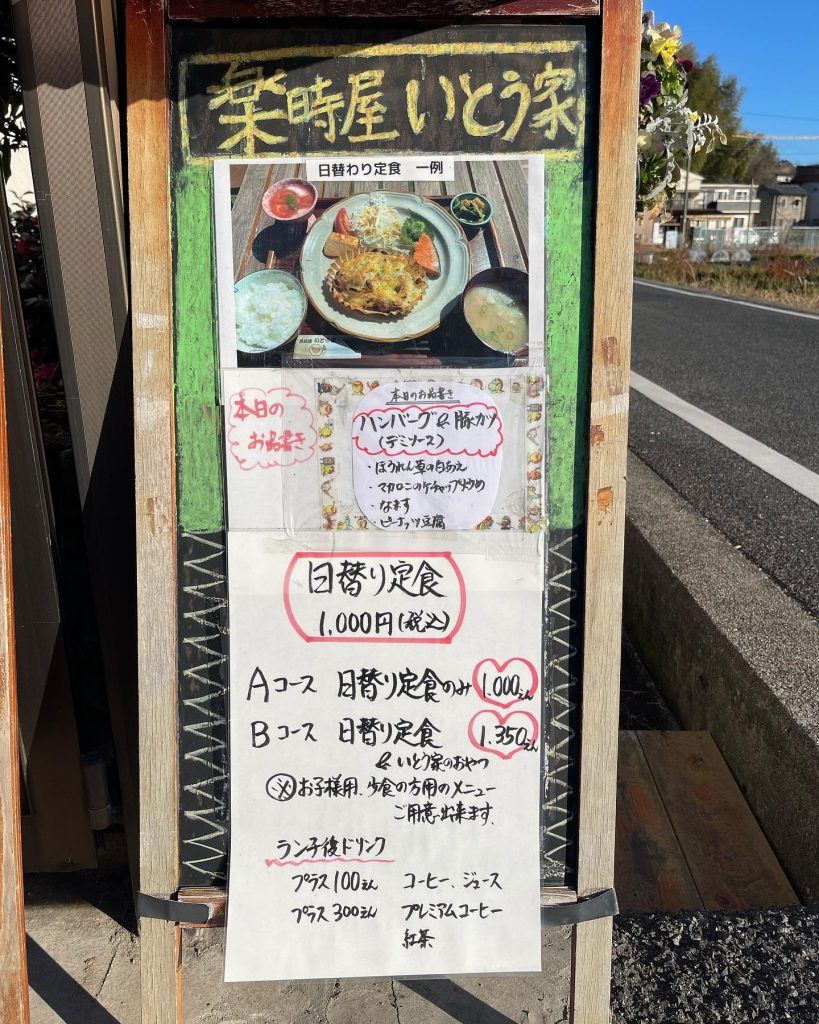 楽時屋 いとう家
日替わり定食 一例
本日の
お品書き
本日のお品書き
ハンバーグ & 豚カツ
(デミソース)
・ほうれん草の白あえ
・マカロニのケチャップ炒め
・なます
・ピーナッツ豆腐
日替り定食
1.000円(税込)
Aコース 日替り定食のみ 1.000えん
Bコース 日替り定食 1.350えん
& いとう家のおやつ
※お子様用、少食の方用のメニュー
ご用意出来ます。
ランチ後ドリンク
プラス100えん コーヒー、ジュース
プラス300えん プレミアムコーヒー
紅茶